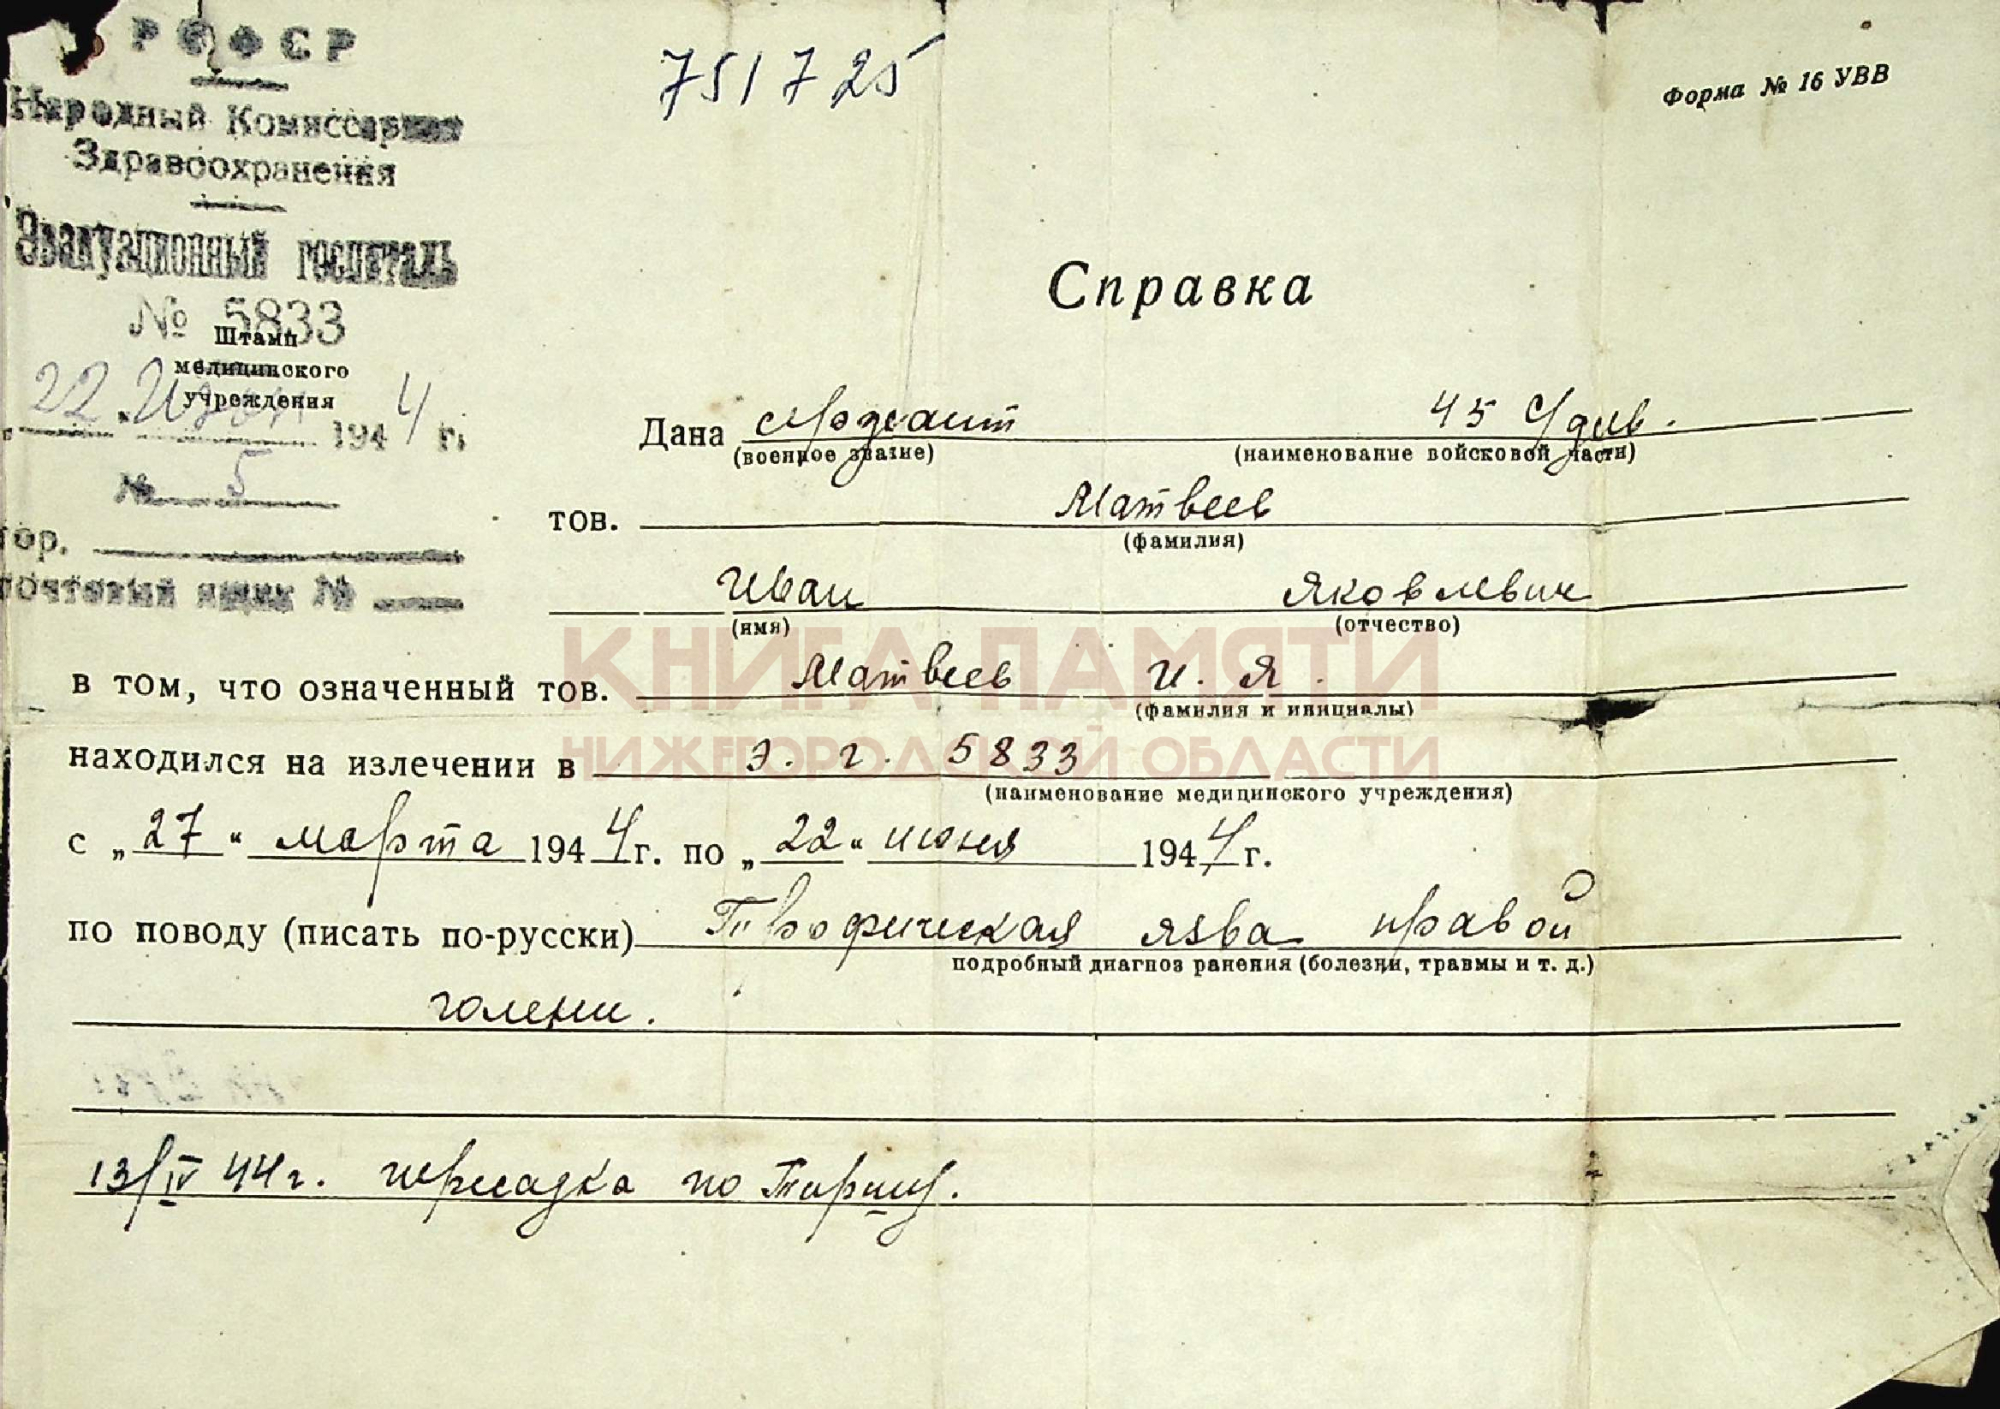 РСФСР
Народный Комиссариат
Здравоохранения
Эвакуационный госпиталь
№ 5833
Штамп
медицинского
учреждения
22 1944 г.
№ 5
гор.
почтовый ящик №
751725
Форма № 16 УВВ
Справка
Дана сержант 45
(военное звание) (наименование войсковой части)
тов. Матвеев
(фамилия)
Иван Яковлевич
(имя) (отчество)
в том, что означенный тов. Матвеев И. Я.
(фамилия и инициалы)
находился на излечении в э. г. 5833
(наименование медицинского учреждения)
с „27“ марта 1944 г. по „22“ июня 1944 г.
по поводу (писать по-русски) Трофическая язва правой
подробный диагноз ранения (болезни, травмы и т. д.)
голени.
13/IV 44 г. пересадка по Тиршу.
КНИГА ПАМЯТИ
НИЖЕГОРОДСКОЙ ОБЛАСТИ